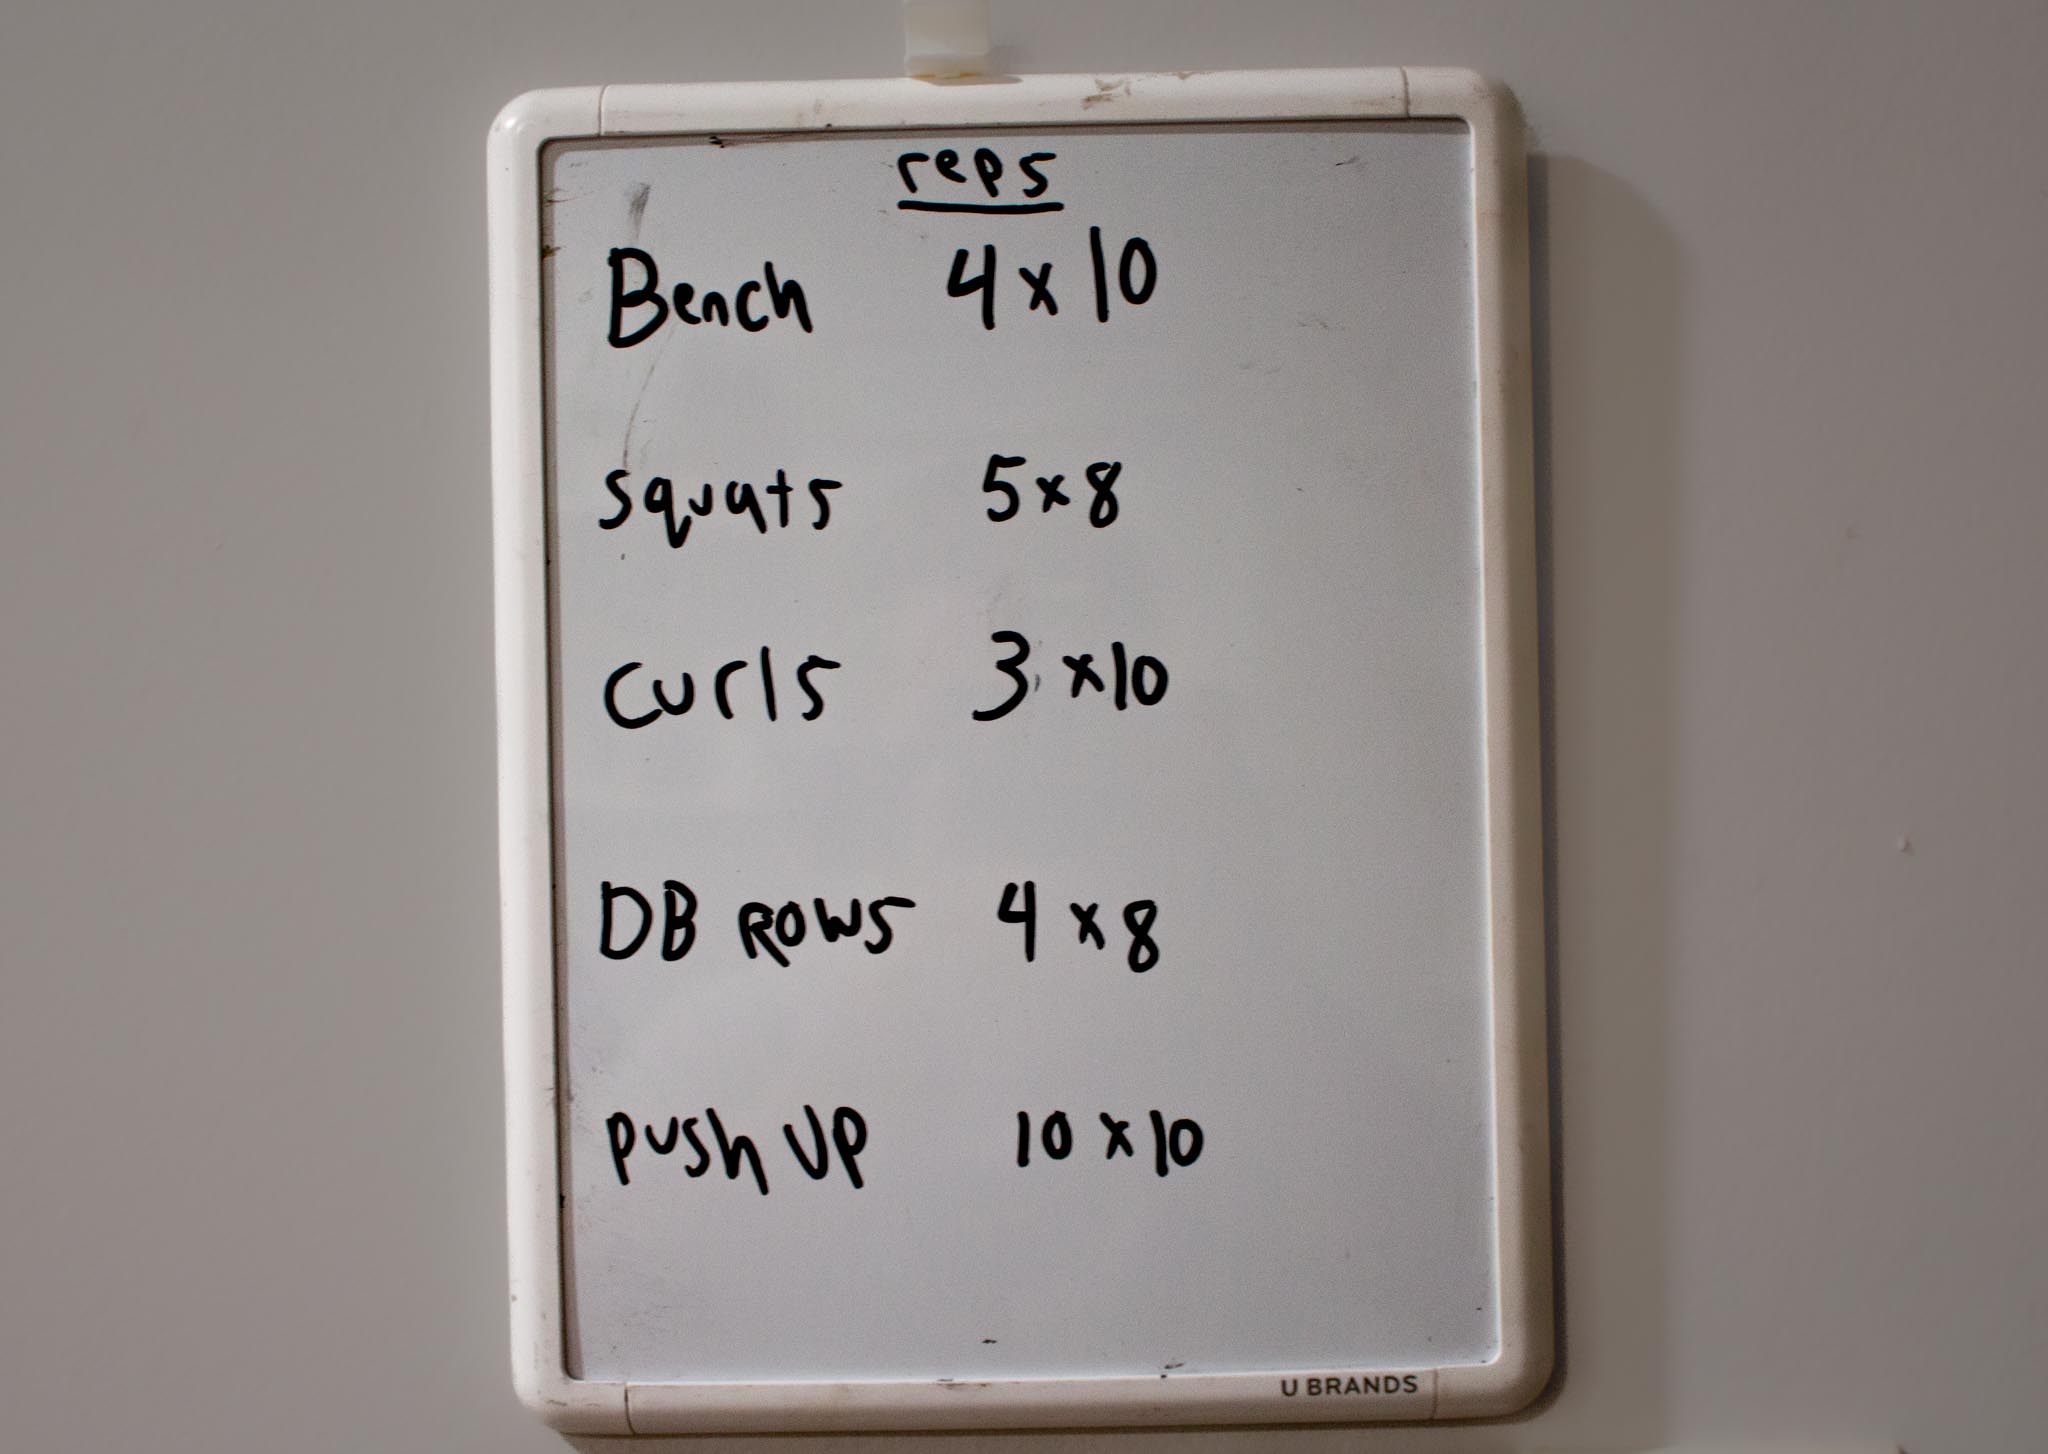 reps
Bench 4 x 10
squats 5 x 8
curls 3 x 10
DB ROWS 4 x 8
push up 10 x 10
U BRANDS